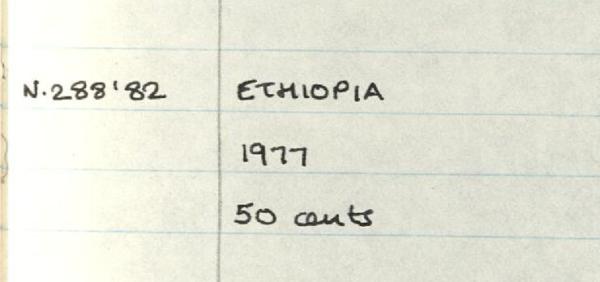 N.288'82 ETHIOPIA
1977
50 cents